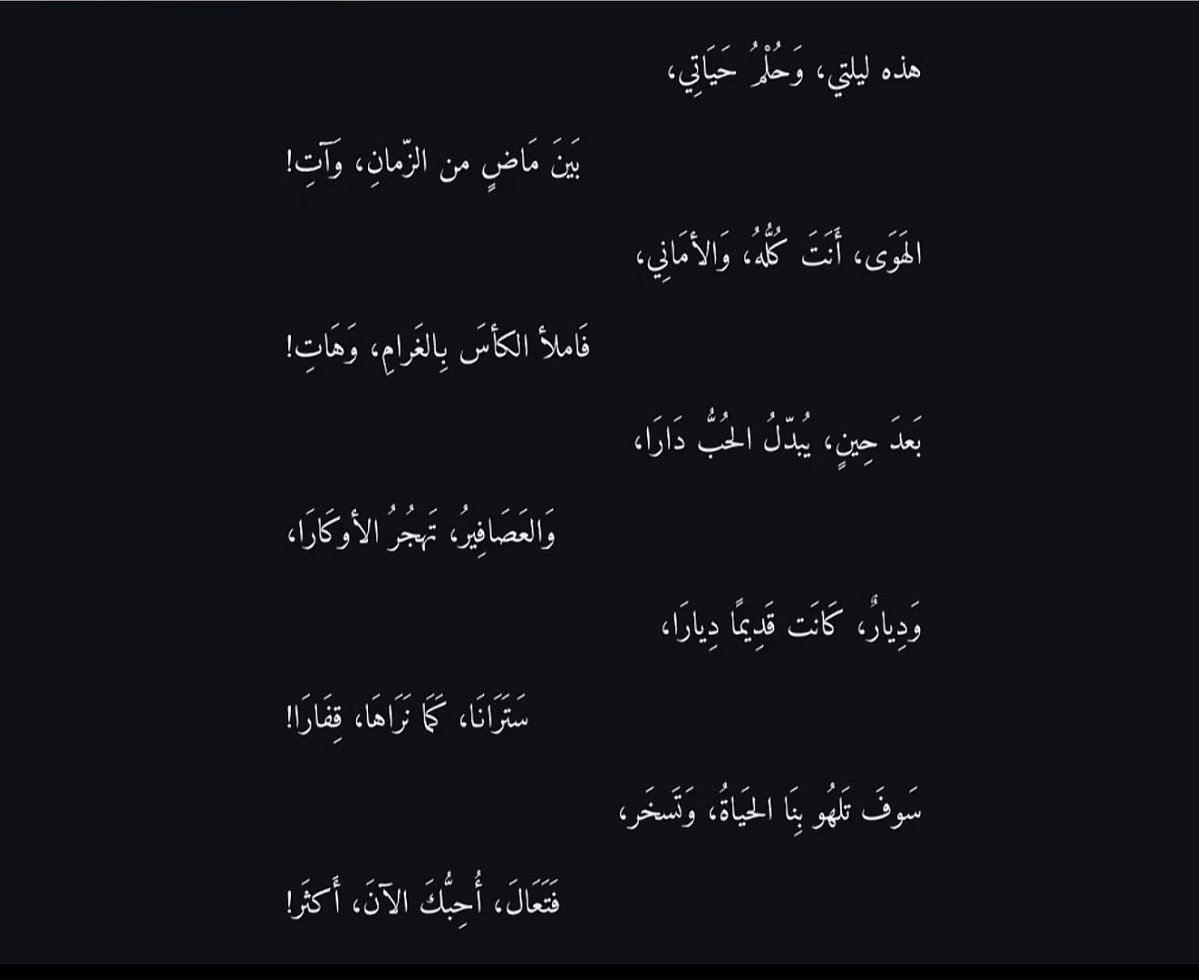 هذه ليلتي، وَحُلْمُ حَيَاتِي،
بَينَ مَاضٍ من الزّمانِ، وَآتِ!
الهَوَى، أَنتَ كُلُّهُ، وَالأمَانِي،
فَاملأ الكأسَ بِالغَرامِ، وَهَاتِ!
بَعدَ حِينٍ، يُبدّلُ الحُبُّ دَارَا،
وَالعَصَافِيرُ، تَهجُرُ الأوكَارَا،
وَدِيارٌ، كَانَت قَدِيمًا دِيارَا،
سَتَرَانَا، كَمَا نَرَاهَا، قِفَارَا!
سَوفَ تَلهُو بِنَا الحَياةُ، وَتَسخَر،
فَتَعَالَ، أُحِبُّكَ الآنَ، أَكثَر!